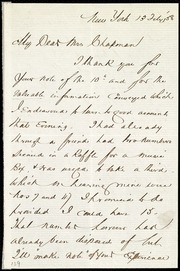 New York 15 Feby/58
My Dear Mrs Chapman
I thank you for
your note of the 10th and for the
valuable information conveyed which
I endeavored to turn to good account
that Evening. I had already
through a friend had two numbers
secured in a Raffle for a music
Box & was urged to take a third
which on hearing more were
Nos 7 and 47 I proposed to be
provided I could have 15-
that number however had
already been disposed of but
I'll make note of your experience